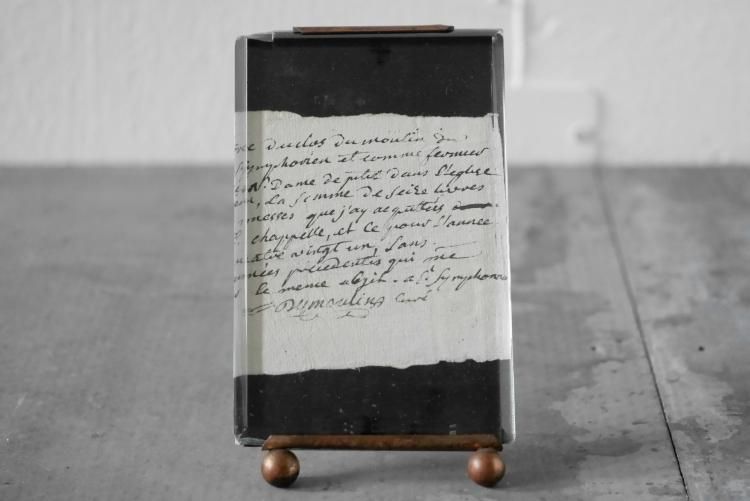 duclos dumoulin du
Symphorien et comme fermier
Dame de pitié dans l'eglise
La Somme de Seize livres
messes que j'ay acquittées
chappelle, et ce pour l'année
quatre vingt un, Sans
années précédentes qui me
le meme objet. a St. Symphorien
Dumoulins Curé